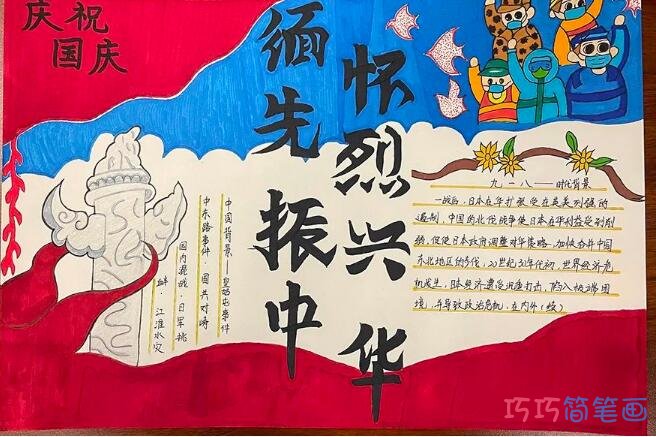 庆祝
国庆
缅怀
先烈
振兴
中华
中国背景——皇姑屯事件
中东路事件·国共对峙
国内混战·日军挑
衅·江淮水灾
九一八——时代背景
一战后,日本在华扩张受在英美列强的
遏制,中国的北伐战争使日本在华利益受到削
弱,促使日本政府调整对华策略,加快分井中国
东北地区的步伐,20世纪30年代初,世界经济危
机发生,日本经济遭受沉重打击,陷入极端困
境,并导致政治危机,在内外(续)
巧巧简笔画